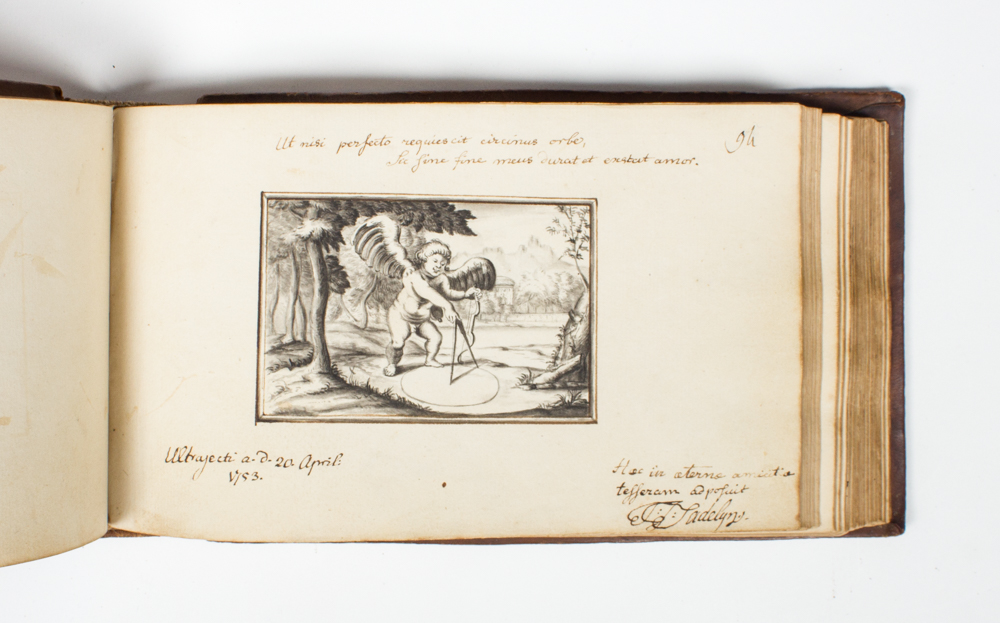 Ut nisi perfecto requiescit circinus orbe,
94
Sic sine fine meus durat et exstat amor.
Ultrajecti a. d. 20 April:
1753.
Hæc in æternæ amicitiæ
tesseram adposuit